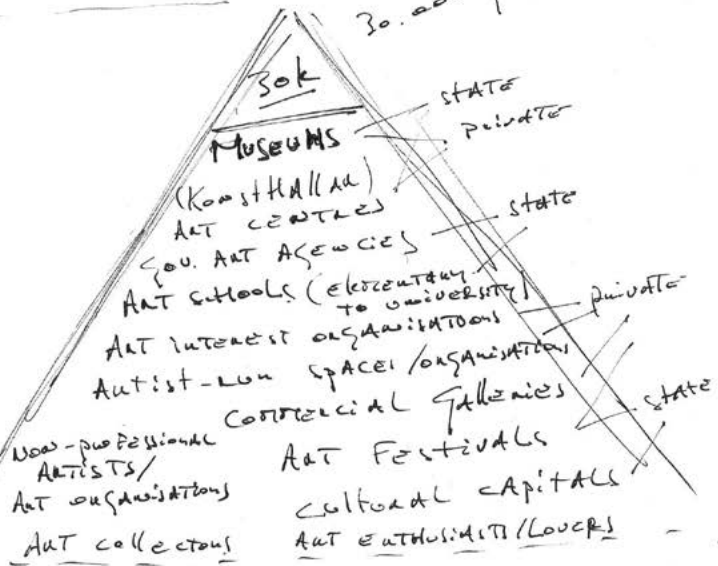 30.00
30k
STATE
MUSEUMS
private
(KonstHallar)
ART CENTRES
STATE
GOV. ART AGENCIES
ART SCHOOLS (ELEMENTARY
TO UNIVERSITY)
ART INTEREST ORGANISATIONS
private
ARTIST-RUN SPACES/ORGANISATIONS
COMMERCIAL GALLERIES
STATE
NON-PROFESSIONAL
ARTISTS/
ART ORGANISATIONS
ART FESTIVALS
CULTURAL CAPITALS
ART COLLECTORS
ART ENTHUSIASTS/LOVERS